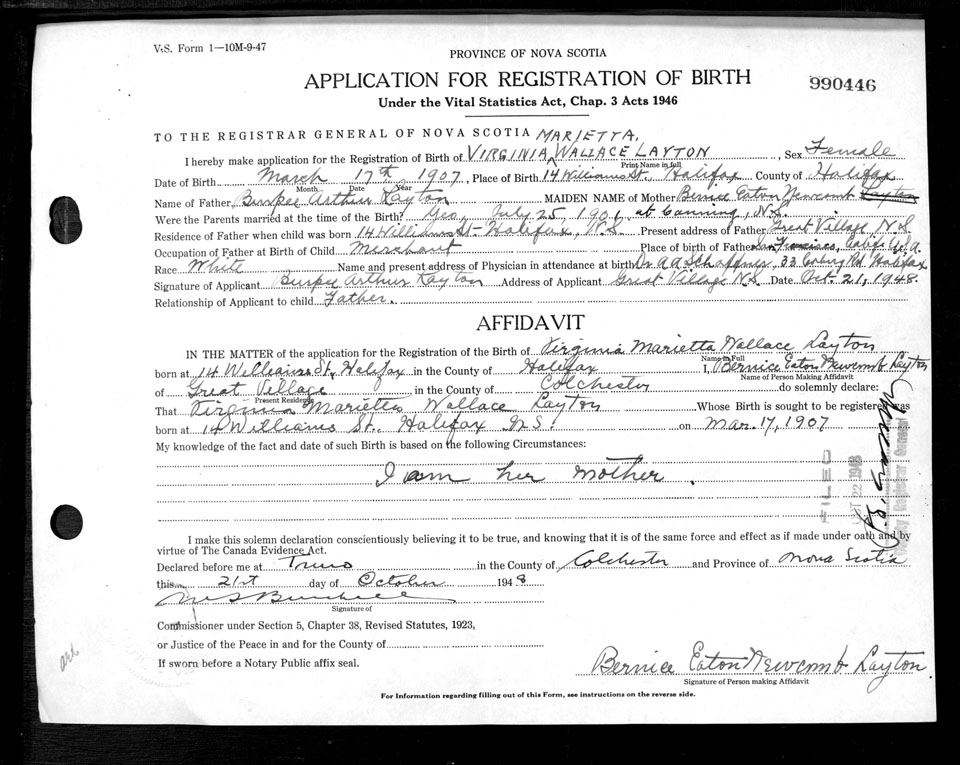 V.S. Form 1—10M-9-47
PROVINCE OF NOVA SCOTIA
APPLICATION FOR REGISTRATION OF BIRTH
990446
Under the Vital Statistics Act, Chap. 3 Acts 1946
TO THE REGISTRAR GENERAL OF NOVA SCOTIA MARIETTA
I hereby make application for the Registration of Birth of VIRGINIA WALLACE LAYTON, Sex Female
Print Name in full
Date of Birth March 17th 1907, Place of Birth 14 Williams St., Halifax County of Halifax
Month Date Year
Name of Father Burpee Arthur Layton MAIDEN NAME of Mother Bernice Eaton Newcomb Layton
Were the Parents married at the time of the Birth? Yes, July 25, 1901, at Canning, N.S.
Residence of Father when child was born 14 Williams St Halifax, N.S. Present address of Father Great Village N.S
Occupation of Father at Birth of Child Merchant Place of birth of Father San Francisco, Calif. U.S.A.
Race White Name and present address of Physician in attendance at birth Dr A A Schaffner, 33 Rd. Halifax
Signature of Applicant Burpee Arthur Layton Address of Applicant Great Village N.S Date Oct. 21, 1948.
Relationship of Applicant to child Father.
AFFIDAVIT
IN THE MATTER of the application for the Registration of the Birth of Virginia Marietta Wallace Layton
Name in Full
born at 14 Williams St, Halifax in the County of Halifax I, Bernice Eaton Newcomb Layton
Name of Person Making Affidavit
of Great Village in the County of Colchester do solemnly declare:
Present Residence
That Virginia Marietta Wallace Layton Whose Birth is sought to be registered was
born at 14 Williams St. Halifax N.S. on Mar. 17, 1907
My knowledge of the fact and date of such Birth is based on the following Circumstances:
I am her mother.
FILED
OCT 22 1948
Deputy Registrar General
I make this solemn declaration conscientiously believing it to be true, and knowing that it is of the same force and effect as if made under oath and by
virtue of The Canada Evidence Act.
Declared before me at Truro in the County of Colchester and Province of Nova Scotia
this 21st day of October 1948
Signature of
Commissioner under Section 5, Chapter 38, Revised Statutes, 1923,
or Justice of the Peace in and for the County of
If sworn before a Notary Public affix seal.
Bernice Eaton Newcomb Layton
Signature of Person making Affidavit
For Information regarding filling out of this Form, see instructions on the reverse side.